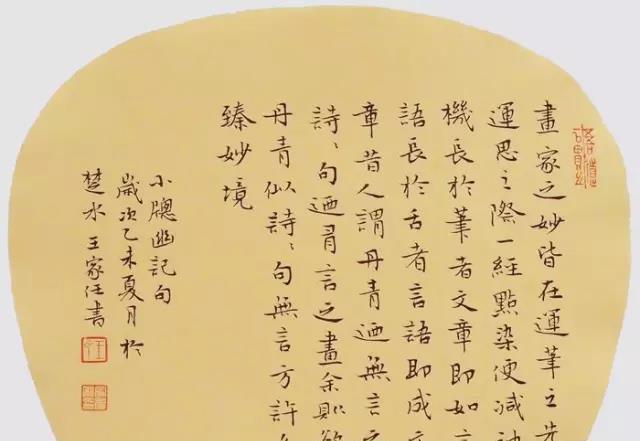 畫家之妙皆在運筆之先
運思之際一經點染便減神
機長於筆者文章即如言
語長於舌者言語即成文
章昔人謂丹青迺無言之
詩〻句迺有言之畫余則欲
丹青似詩〻句無言方許
臻妙境
小牕幽記句
歲次乙未夏月於
楚水王家任書